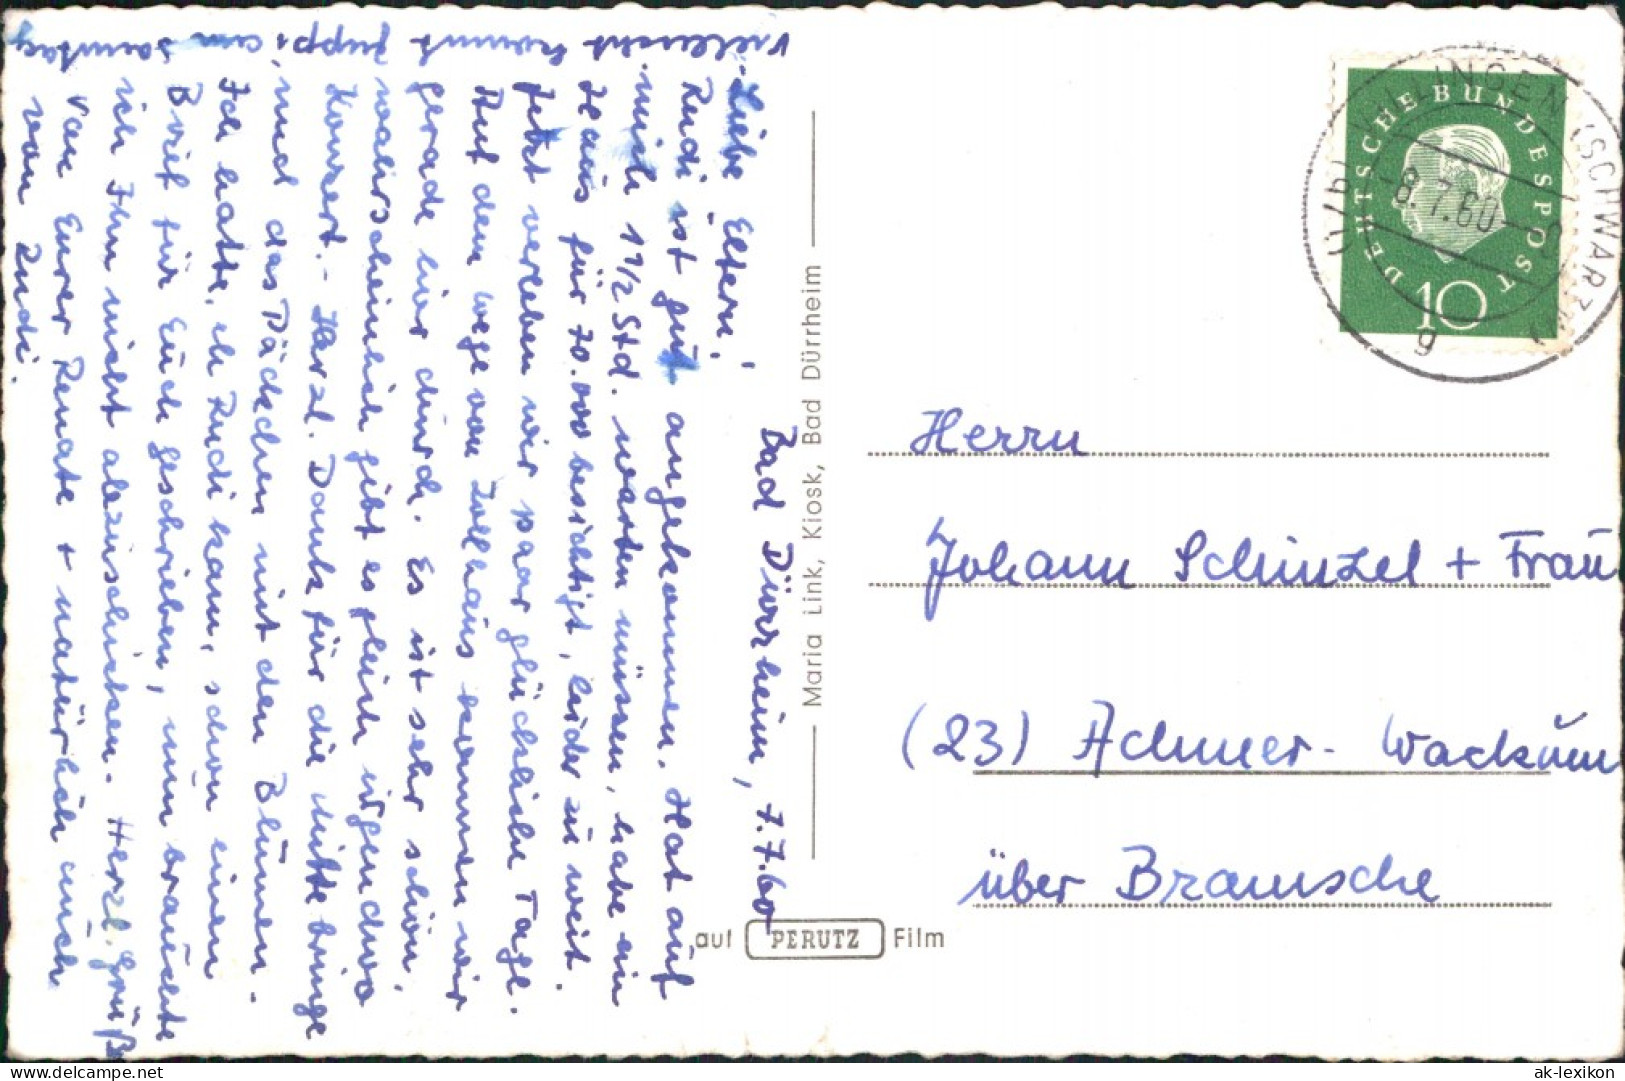 Bad Dürrheim, 7.7.60
Liebe Eltern!
Rudi ist gut angekommen. Hat auf
mich 1 1/2 Std. warten müssen, habe ein
Haus für 70.000 besichtigt, leider zu weit.
Jetzt verleben wir paar glückliche Tage.
Auf dem Wege von Zollhaus kommen wir
gerade hier durch. Es ist sehr schön,
wahrscheinlich gibt es gleich irgendwo
Konzert.- Herzl. Dank für die
und das Päckchen mit den Blumen.
Ich hatte, eh Rudi kam, schon einen
Brief für Euch geschrieben, nun brauchte
ich Ihn nicht abzuschicken. Herzl. Grüße
von Eurer Renate + natürlich auch
von Rudi.
Vielleicht kommt Puppi am Samstag
Maria Link, Kiosk, Bad Dürrheim
auf PERUTZ Film
DEUTSCHE BUNDESPOST
10
-8.7.60
g
Herrn
Johann Schinzel + Frau
(23) Achmer- Wackum
über Bramsche
delcampe.net
ak-lexikon